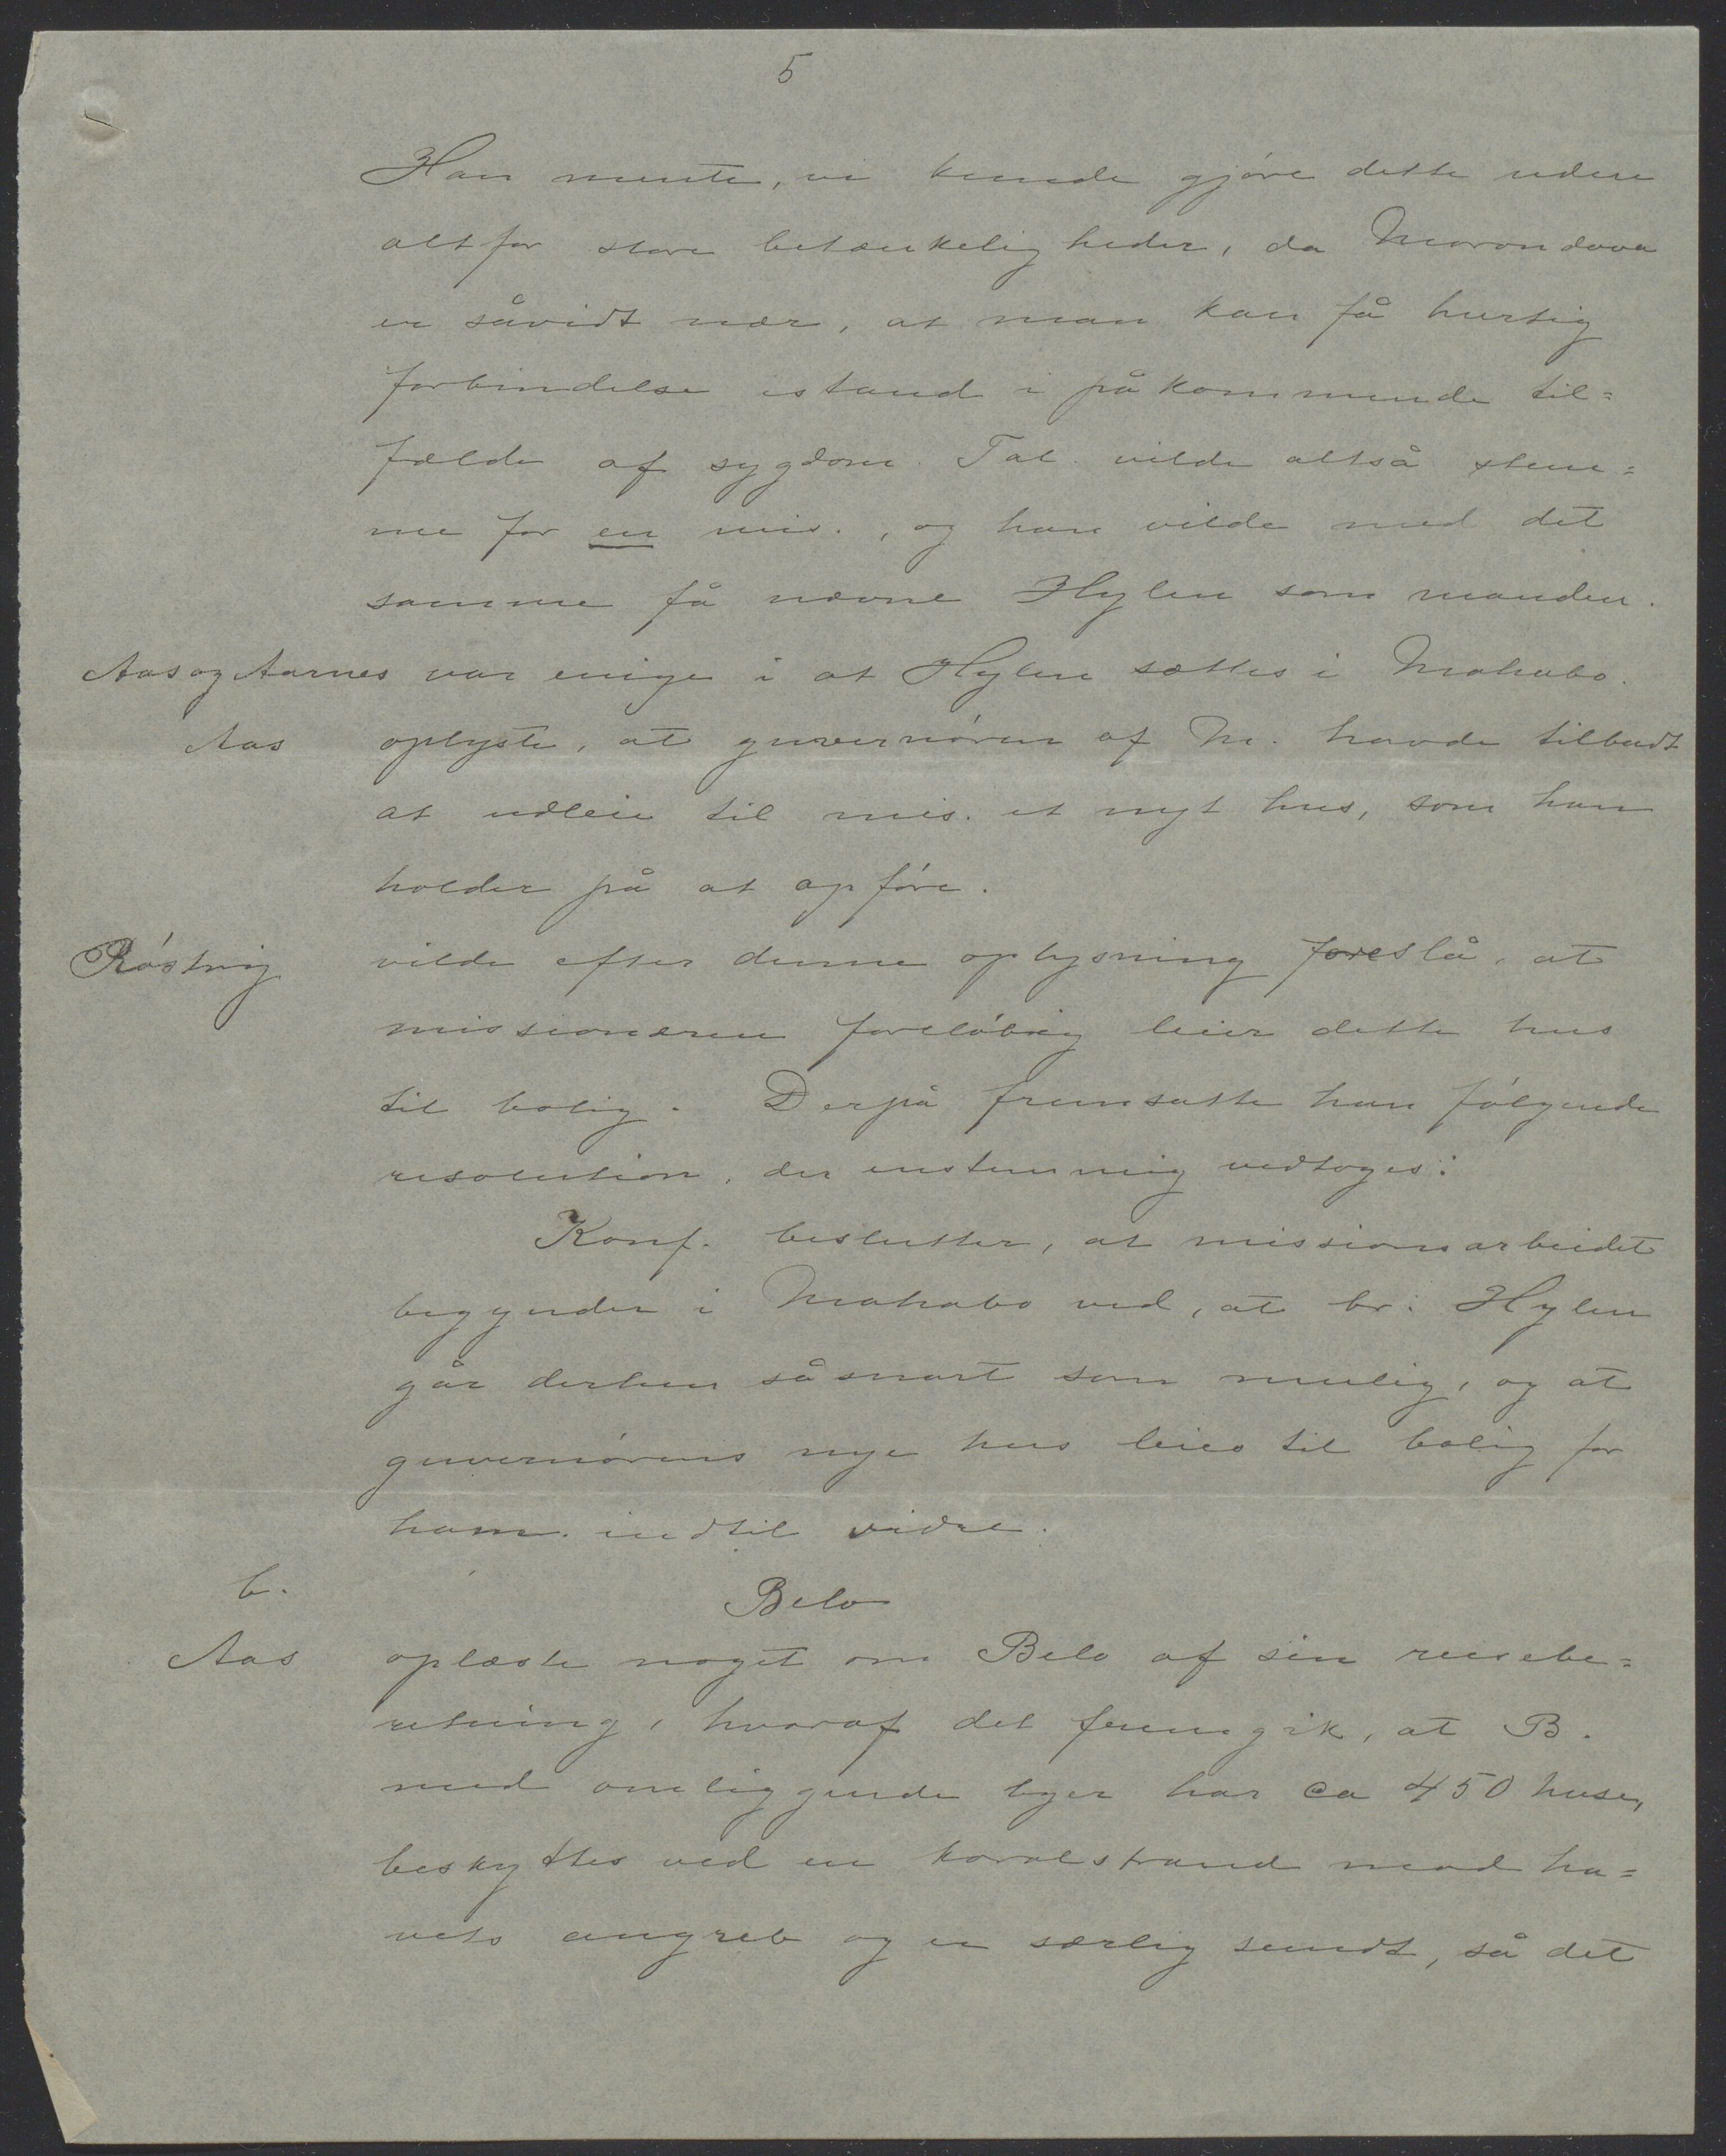 5
Han mente, vi kunde gjøre dette uden
alt for store betænkeligheder, da Morondava
er såvidt nær, at man kan få hurtig
forbindelse istand i påkommende til=
fælde af sygdom. Tal. vilde altså stem=
me for en mis., og han vilde med det
samme få nævne Hylen som manden.
Aas og Aarnes var enige i at Hylen sættes i Mahabo.
Aas oplyste, at guvernøren af M. havde tilbudt
at udleie til mis. et nyt hus, som han
holder på at opføre.
Röstvig vilde efter denne oplysning foreslå, at
missionæren foreløbig leier dette hus
til bolig. Derpå fremsatte han følgende
resolution, der enstemmig vedtoges:
Konf. beslutter, at missionsarbeidet
begynder i Mahabo ved, at br. Hylen
går derhen såsnart som mulig, og at
guvernørens nye hus leies til bolig for
ham indtil vidre.
b. Belo
Aas oplæste noget om Belo af sin reisebe=
retning, hvoraf det fremgik, at B.
med omliggende byer har ca 450 huse,
beskyttes ved en koralstrand mod ha=
vets angreb og er særlig sundt, så det